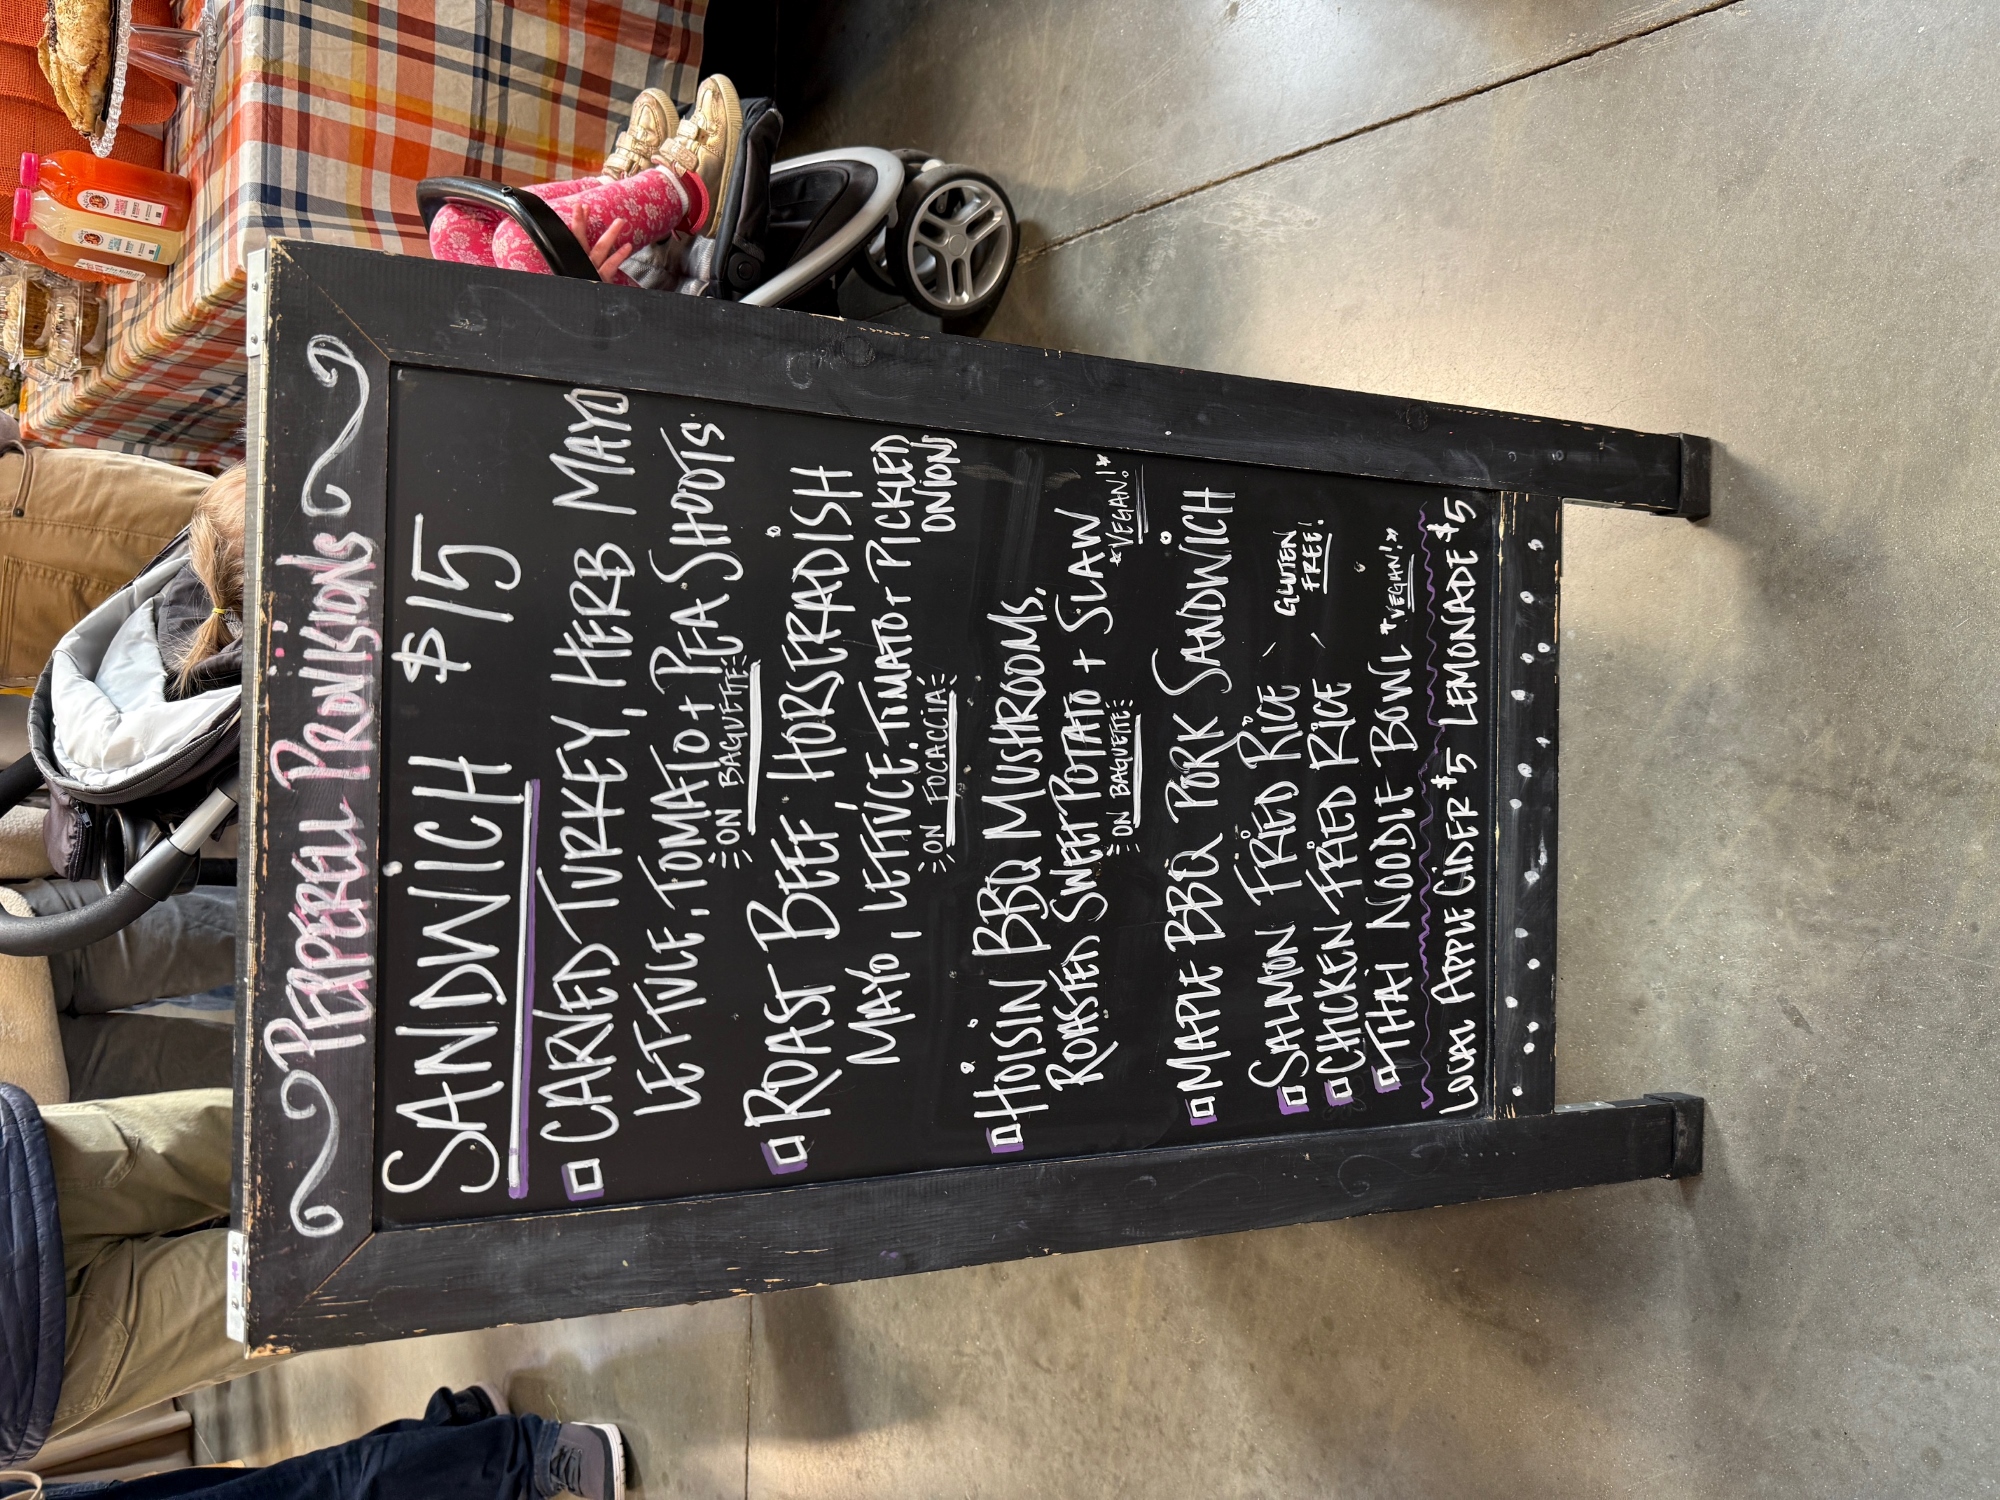 PEPPERELL PROVISIONS
SANDWICH $15
CARVED TURKEY, HERB MAYO
LETTUCE, TOMATO + PEA SHOOTS
ON BAGUETTE
ROAST BEEF, HORSERADISH
MAYO, LETTUCE, TOMATO + PICKLED
ONION
ON FOCACCIA
HOISIN BBQ MUSHROOMS,
ROASTED SWEET POTATO + SLAW
ON BAGUETTE
"VEGAN!"
MAPLE BBQ PORK SANDWICH
SALMON FRIED RICE
CHICKEN FRIED RICE
GLUTEN
FREE!
THAI NOODLE BOWL "VEGAN!"
LOCAL APPLE CIDER $5 LEMONADE $5